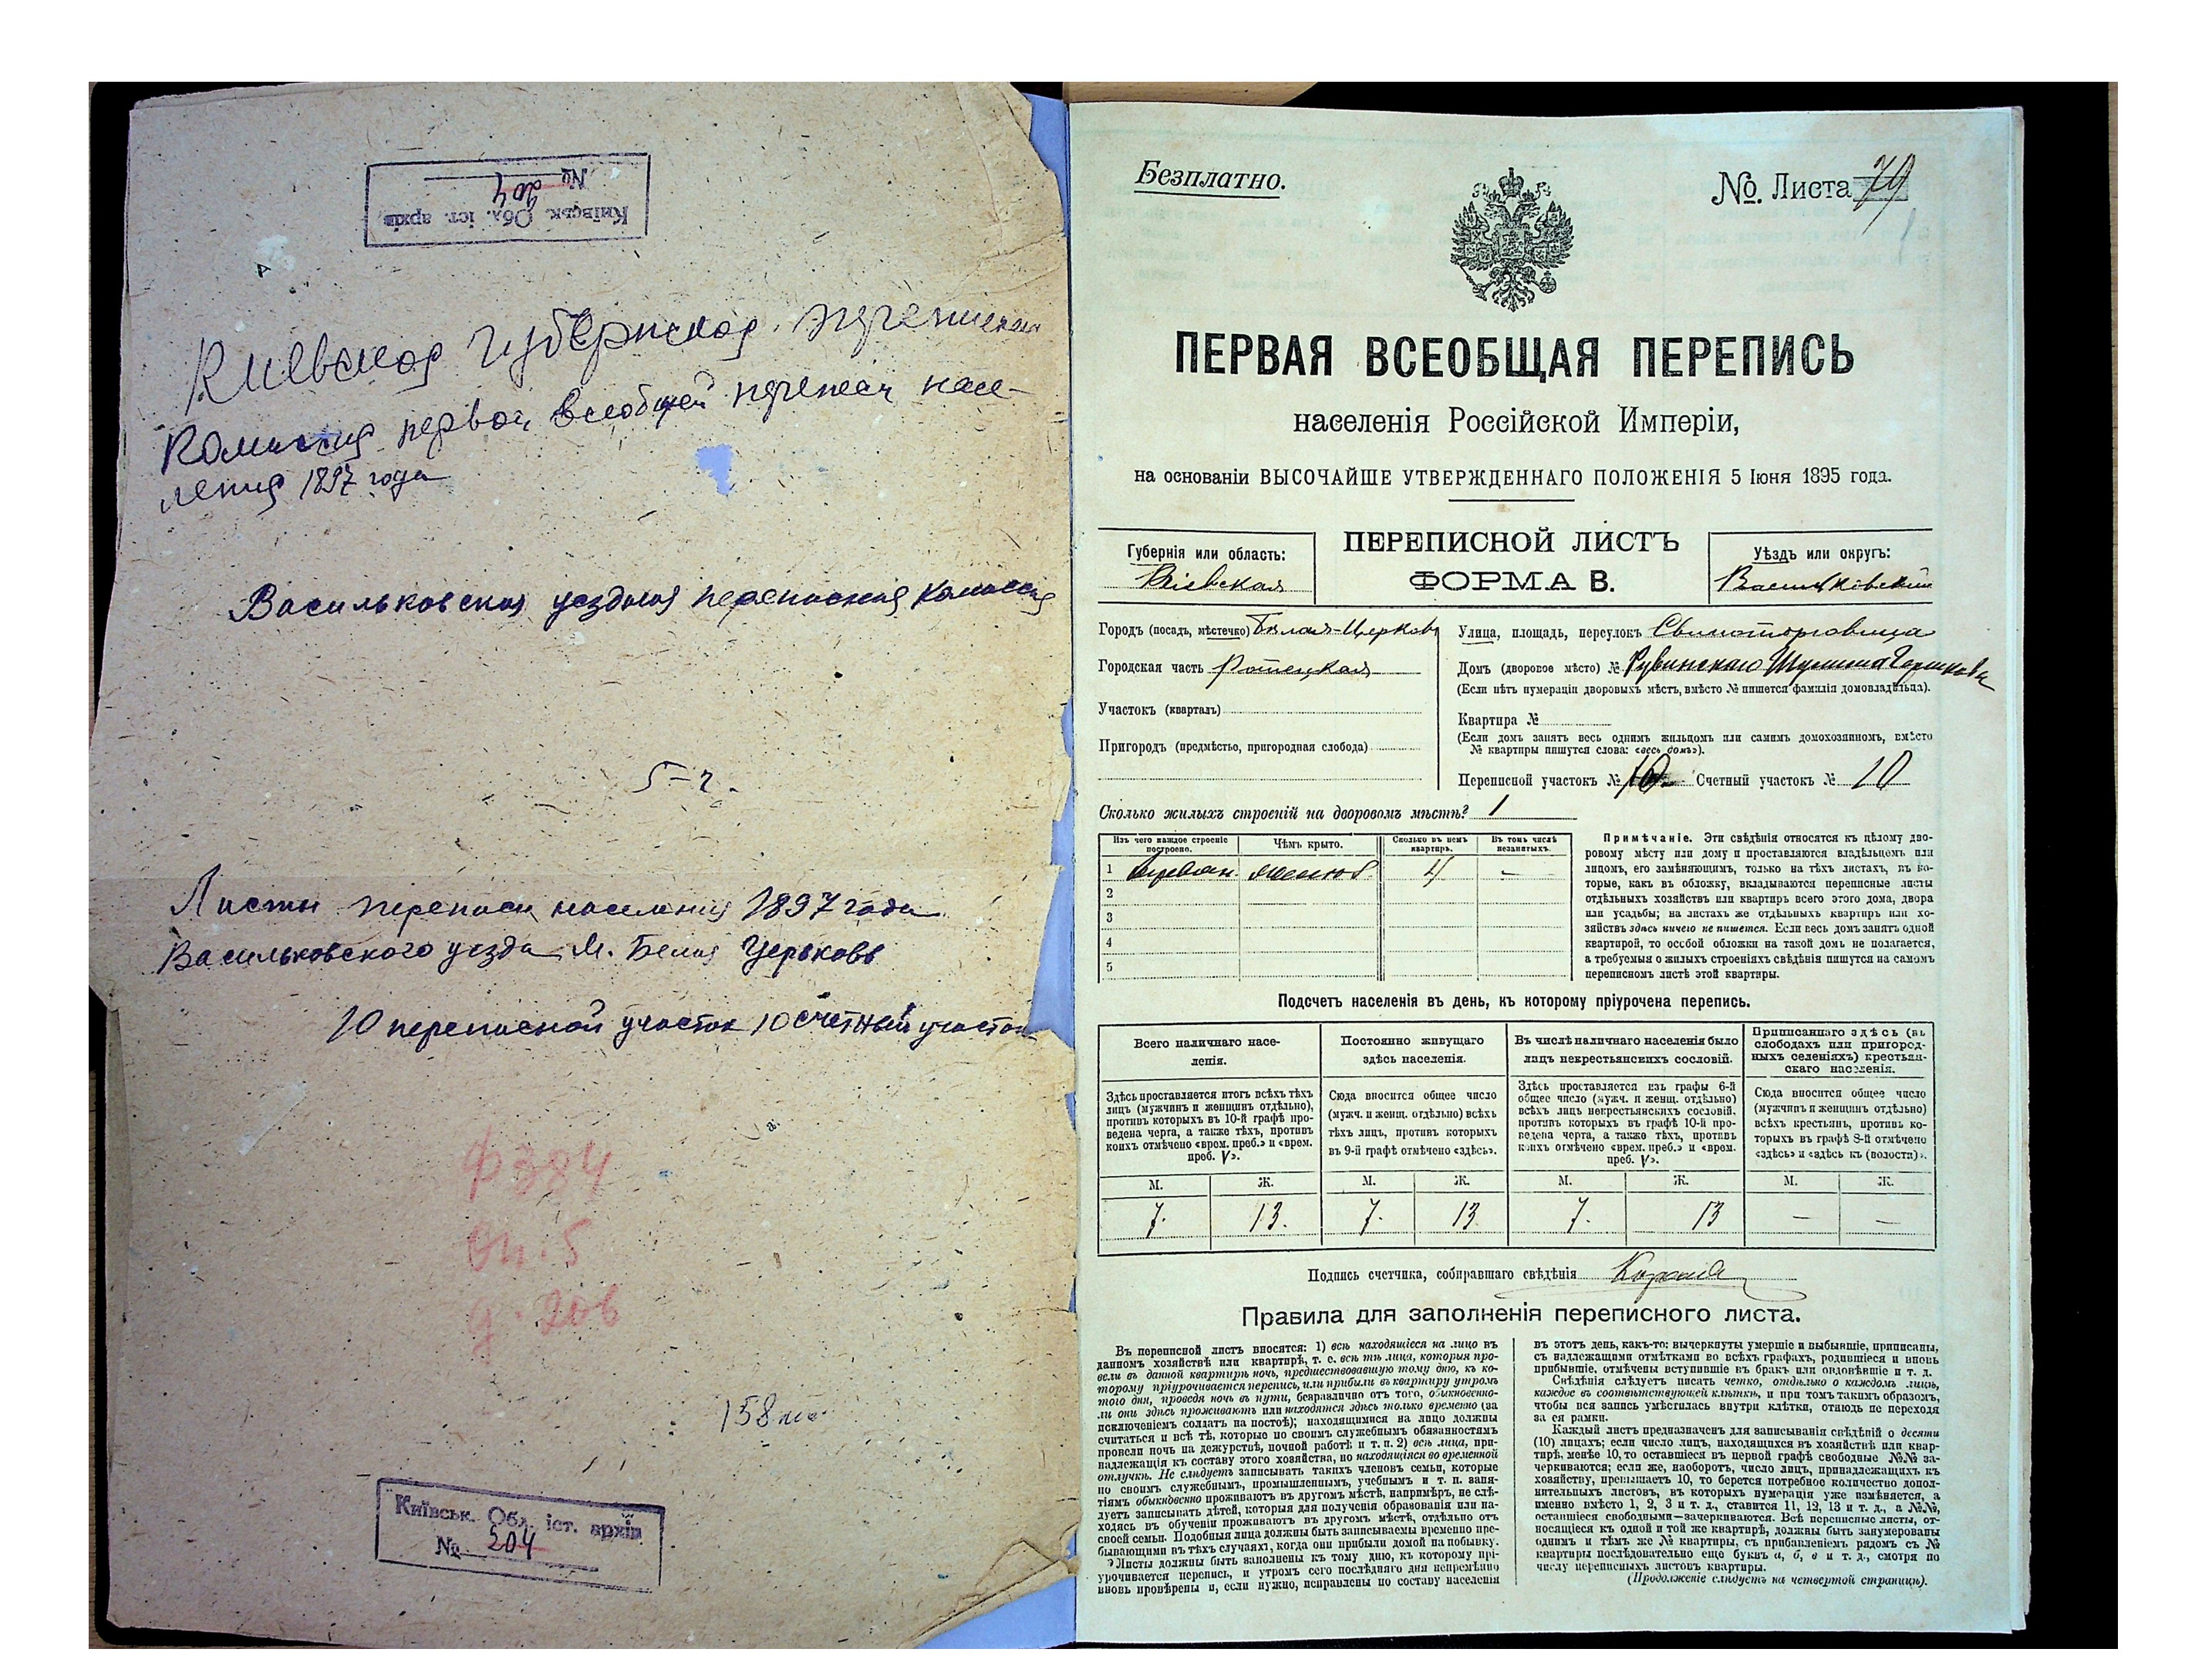 Київськ. Обл. іст. архів
№ 204
Киевская губернская переписная
комиссия первой всеобщей переписи насе-
ления 1897 года
Васильковская уездная переписная комиссия
Листы переписи населения 1897 года
Васильковского уезда м. Белая Церьковь
10 переписной участок 10 счетный участок
Ф 384
оп. 5
д. 206
158
Київськ. Обл. іст. архів
№ 204
Безплатно.
№ Листа 79
ПЕРВАЯ ВСЕОБЩАЯ ПЕРЕПИСЬ
населенія Россійской Имперіи,
на основаніи ВЫСОЧАЙШЕ УТВЕРЖДЕННАГО ПОЛОЖЕНІЯ 5 Іюня 1895 года.
Губернія или область:
Кіевская
ПЕРЕПИСНОЙ ЛИСТЪ
ФОРМА В.
Уѣздъ или округъ:
Васильковскій
Городъ (посадъ, мѣстечко) Бѣлая-Церковь
Городская часть
Участокъ (кварталъ)
Пригородъ (предмѣстье, пригородная слобода)
Улица, площадь, переулокъ
Домъ (дворовое мѣсто) №
(Если нѣтъ нумераціи дворовыхъ мѣстъ, вмѣсто № пишется фамилія домовладѣльца).
Квартира №
(Если домъ занятъ весь однимъ жильцомъ или самимъ домохозяиномъ, вмѣсто
№ квартиры пишутся слова: «весь домъ»).
Переписной участокъ № 10 Счетный участокъ № 10
Сколько жилыхъ строеній на дворовомъ мѣстѣ? 1
Изъ чего каждое строеніе построено.
Чѣмъ крыто.
Сколько въ немъ квартиръ.
Въ томъ числѣ незанятыхъ.
1 деревян. 4 —
2
3
4
5
Примѣчаніе. Эти свѣдѣнія относятся къ цѣлому дво-
ровому мѣсту или дому и проставляются владѣльцемъ или
лицомъ, его замѣняющимъ, только на тѣхъ листахъ, въ ко-
торые, какъ въ обложку, вкладываются переписные листы
отдѣльныхъ хозяйствъ или квартиръ всего этого дома, двора
или усадьбы; на листахъ же отдѣльныхъ квартиръ или хо-
зяйствъ здѣсь ничего не пишется. Если весь домъ занятъ одной
квартирой, то особой обложки на такой домъ не полагается,
а требуемыя о жилыхъ строеніяхъ свѣдѣнія пишутся на самомъ
переписномъ листѣ этой квартиры.
Подсчетъ населенія въ день, къ которому пріурочена перепись.
Всего наличнаго насе-
ленія.
Здѣсь проставляется итогъ всѣхъ тѣхъ
лицъ (мужчинъ и женщинъ отдѣльно),
противъ которыхъ въ 10-й графѣ про-
ведена черта, а также тѣхъ, противъ
коихъ отмѣчено «врем. преб.» и «врем.
преб. V».
Постоянно живущаго
здѣсь населенія.
Сюда вносится общее число
(мужч. и женщ. отдѣльно) всѣхъ
тѣхъ лицъ, противъ которыхъ
въ 9-й графѣ отмѣчено «здѣсь».
Въ числѣ наличнаго населенія было
лицъ некрестьянскихъ сословій.
Здѣсь проставляется изъ графы 6-й
общее число (мужч. и женщ. отдѣльно)
всѣхъ лицъ некрестьянскихъ сословій,
противъ которыхъ въ графѣ 10-й про-
ведена черта, а также тѣхъ, противъ
коихъ отмѣчено «врем. преб.» и «врем.
преб. V».
Приписаннаго здѣсь (въ
слободахъ или пригород-
ныхъ селеніяхъ) крестьян-
скаго населенія.
Сюда вносится общее число
(мужчинъ и женщинъ отдѣльно)
всѣхъ крестьянъ, противъ ко-
торыхъ въ графѣ 8-й отмѣчено
«здѣсь» и «здѣсь къ (волости)».
М. Ж. М. Ж. М. Ж. М. Ж.
7. 13. 7. 13 7. 13 — —
Подпись счетчика, собиравшаго свѣдѣнія
Правила для заполненія переписного листа.
Въ переписной листъ вносятся: 1) всѣ находящіеся на лицо въ
данномъ хозяйствѣ или квартирѣ, т. е. всѣ тѣ лица, которыя про-
вели въ данной квартирѣ ночь, предшествовавшую тому дню, къ ко-
торому пріурочивается перепись, или прибыли въ квартиру утромъ
того дня, проведя ночь въ пути, безразлично отъ того, обыкновенно-
ли они здѣсь проживаютъ или находятся здѣсь только временно (за
исключеніемъ солдатъ на постоѣ); находящимися на лицо должны
считаться и всѣ тѣ, которые по своимъ служебнымъ обязанностямъ
провели ночь на дежурствѣ, ночной работѣ и т. п. 2) всѣ лица, при-
надлежащія къ составу этого хозяйства, но находящіяся во временной
отлучкѣ. Не слѣдуетъ записывать такихъ членовъ семьи, которые
по своимъ служебнымъ, промышленнымъ, учебнымъ и т. п. заня-
тіямъ обыкновенно проживаютъ въ другомъ мѣстѣ, напримѣръ, не слѣ-
дуетъ записывать дѣтей, которыя для полученія образованія или на-
ходясь въ обученіи проживаютъ въ другомъ мѣстѣ, отдѣльно отъ
своей семьи. Подобныя лица должны быть записываемы временно пре-
бывающими въ тѣхъ случаяхъ, когда они прибыли домой на побывку.
Листы должны быть заполнены къ тому дню, къ которому прі-
урочивается перепись, и утромъ сего послѣдняго дня непремѣнно
вновь провѣрены и, если нужно, исправлены по составу населенія
въ этотъ день, какъ-то: вычеркнуты умершіе и выбывшіе, приписаны,
съ надлежащими отмѣтками во всѣхъ графахъ, родившіеся и вновь
прибывшіе, отмѣчены вступившіе въ бракъ или овдовѣвшіе и т. д.
Свѣдѣнія слѣдуетъ писать четко, отдѣльно о каждомъ лицѣ,
каждое въ соотвѣтствующей клѣткѣ, и при томъ такимъ образомъ,
чтобы вся запись умѣстилась внутри клѣтки, отнюдь не переходя
за ея рамки.
Каждый листъ предназначенъ для записыванія свѣдѣній о десяти
(10) лицахъ; если число лицъ, находящихся въ хозяйствѣ или квар-
тирѣ, менѣе 10, то оставшіеся въ первой графѣ свободные №№ за-
черкиваются; если же, наоборотъ, число лицъ, принадлежащихъ къ
хозяйству, превышаетъ 10, то берется потребное количество допол-
нительныхъ листовъ, въ которыхъ нумерація уже измѣняется, а
именно вмѣсто 1, 2, 3 и т. д., ставится 11, 12, 13 и т. д., а №№,
оставшіеся свободными—зачеркиваются. Всѣ переписные листы, от-
носящіеся къ одной и той же квартирѣ, должны быть занумерованы
однимъ и тѣмъ же № квартиры, съ прибавленіемъ рядомъ съ №
квартиры послѣдовательно еще буквъ а, б, в и т. д., смотря по
числу переписныхъ листовъ квартиры.
(Продолженіе слѣдуетъ на четвертой страницѣ).